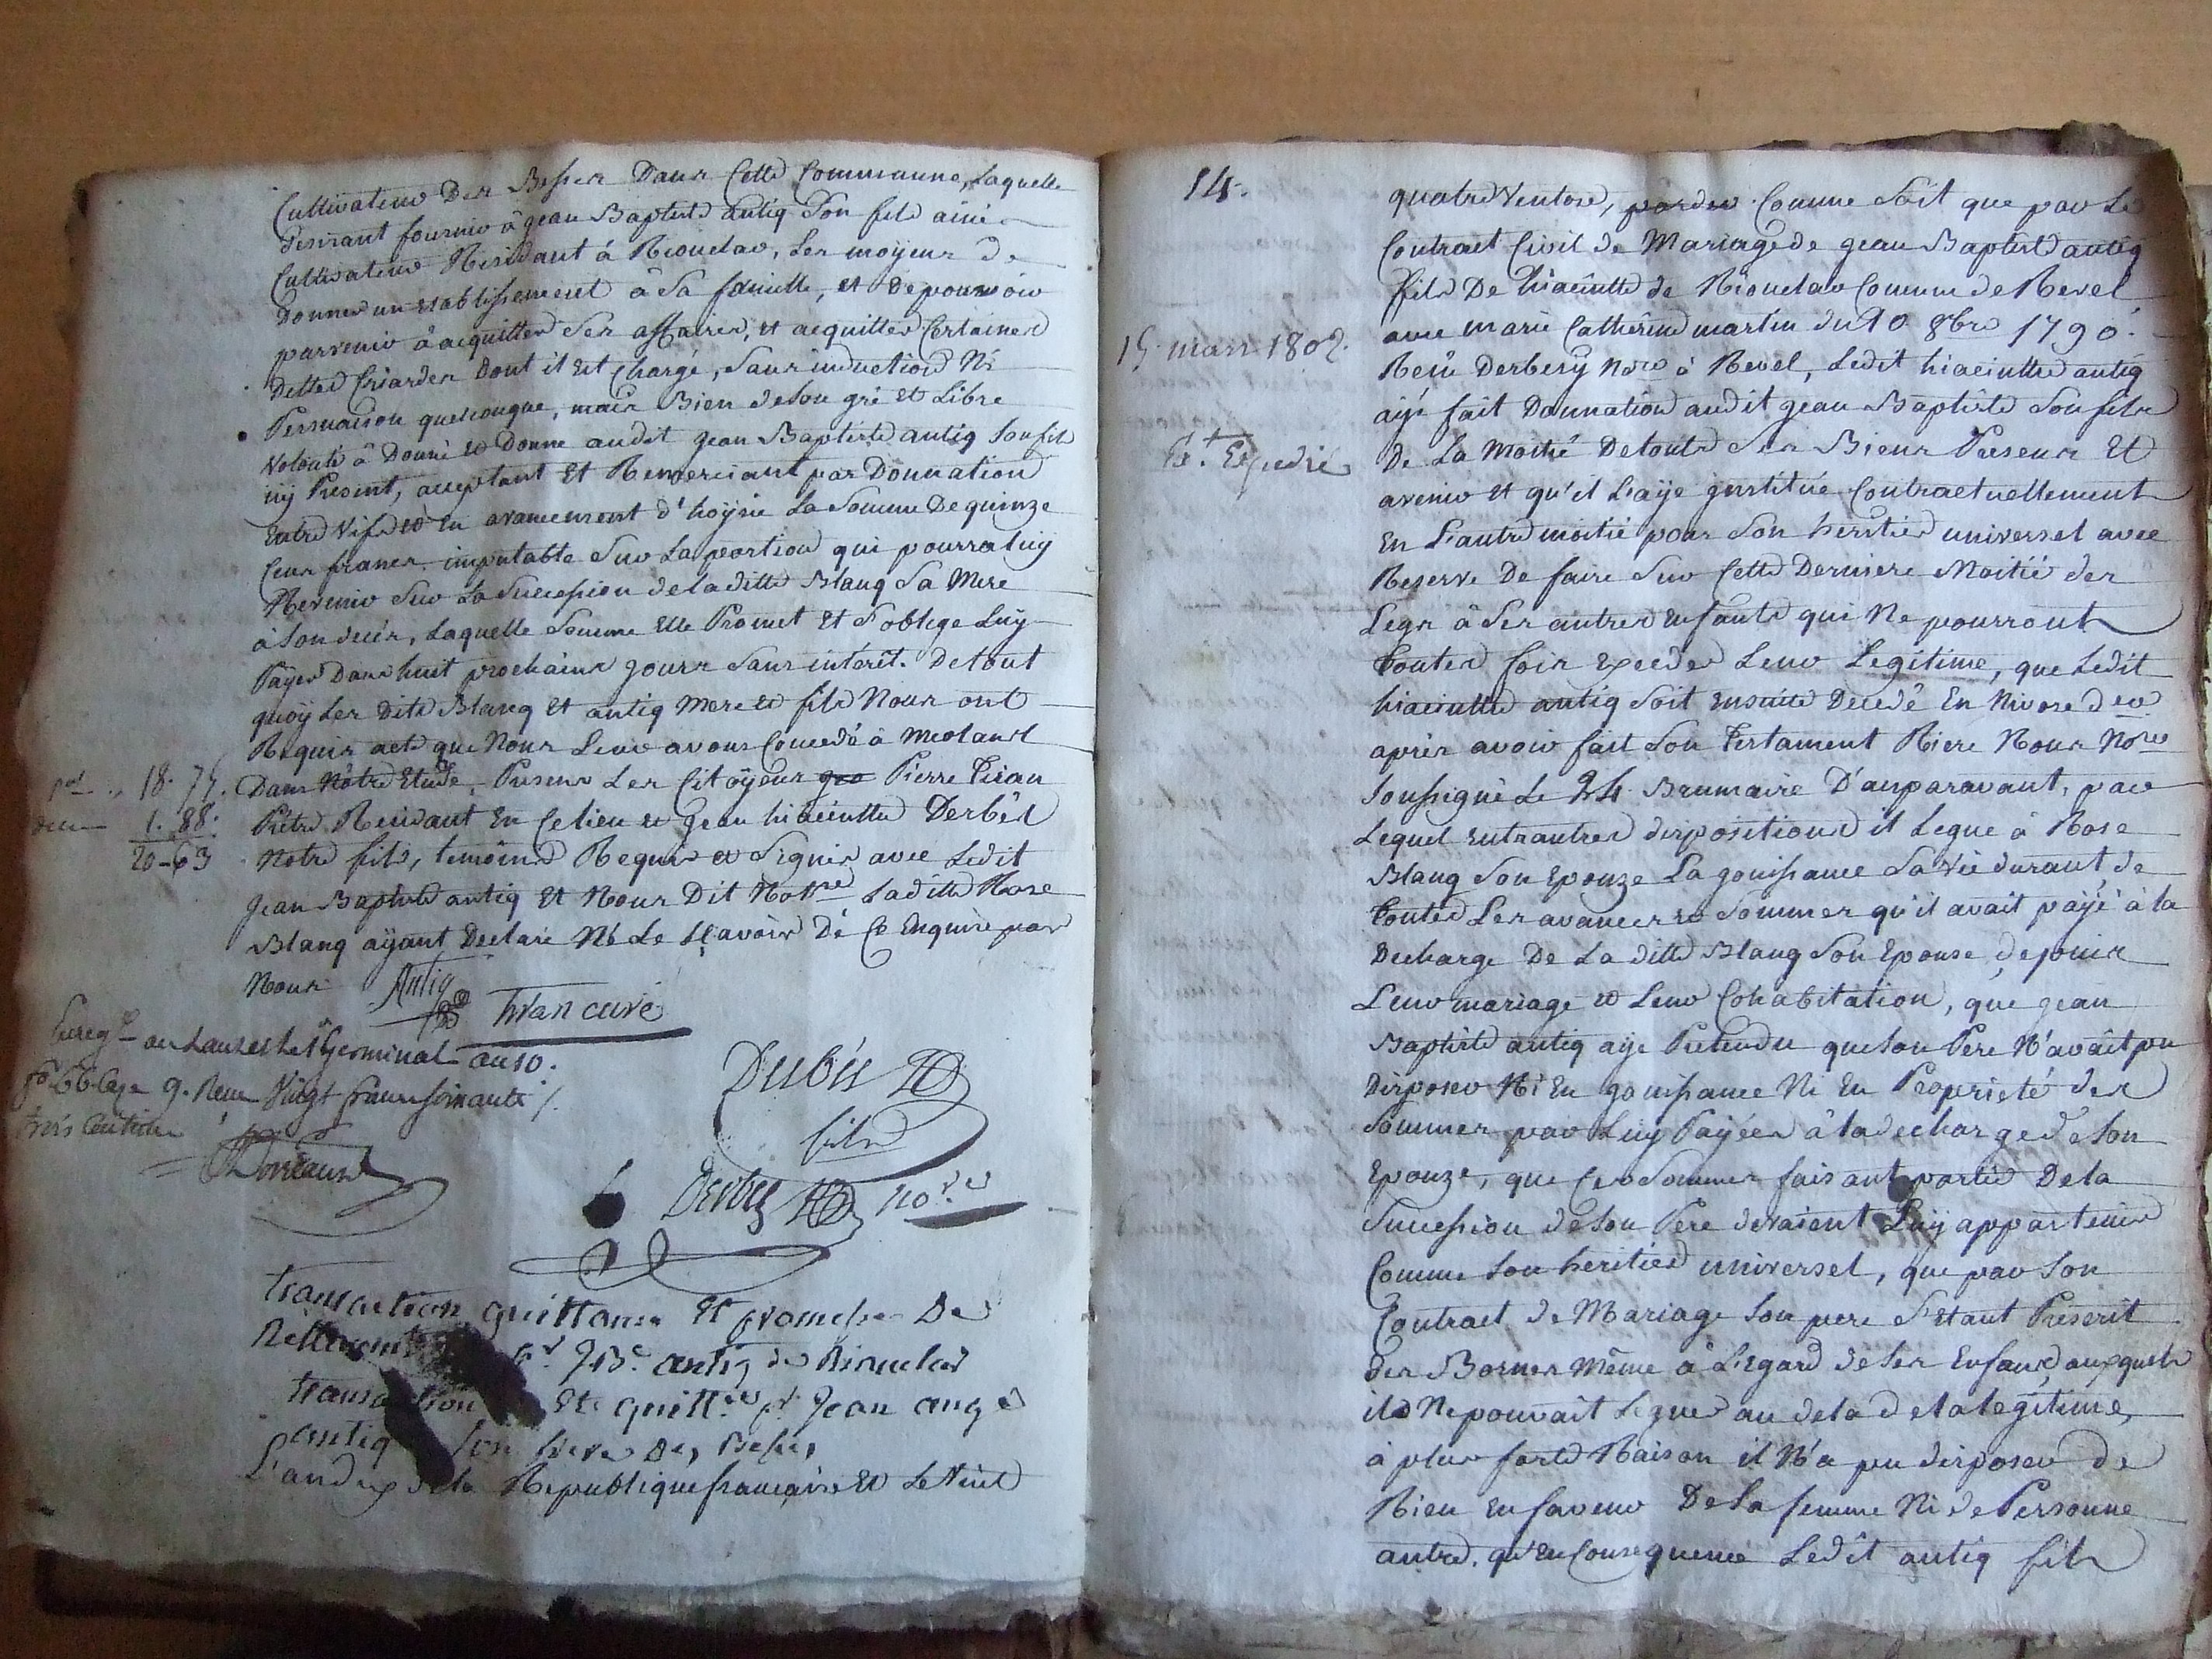 Cultivateur Des Besses Dans Cette Commune, Laquelle
Desirant fournir à jean Baptiste antiq Son fils ainé
Cultivateur Residant à Rioudar, Les moyens de
Donner un etablissement à Sa famille, et de pouvoir
parvenir à acquitter Ses affaires, et acquitter Certaines
Dettes Criardes Dont il Est Chargé, Sans induction Ni
Persuasion quelconque, mais Bien de Son gré et Libre
Volonté à Donné et Donne audit jean Baptiste antiq Son fils
icy Present, acceptant Et Remerciant par Donnation
Entre Vifs et En avancement d'hoyrie La Somme De quinze
Cens francs imputable Sur La portion qui pourra luy
Revenir Sur La Succession de la ditte Blanq Sa Mere
à Son deces, Laquelle Somme Elle Promet Et S'oblige Luy
Payer Dans huit prochains jours Sans interêt. De tout
quoy Les Dits Blanq Et antiq Mere et fils Nous ont
Requis acte que Nous Leur avons Concedé à Meolans
Dans Nôtre Etude, Presens Les Citoÿens Pierre Tiran
Prêtre Residant En Ce lieu et jean hiacinthe Derbés
Notre fils, temoins Requis et Signés avec Ledit
Jean Baptiste antiq Et Nous Dit Notre Laditte Rose
Blanq aÿant Declaré Ne Le Sçavoir De Ce Enquise par
Nous
pal 18. 75.
1. 88.
20-63
Antiq
Tiran curé
Enregtré au Lauzet Le Germinal an 10.
fo 66 Case 9. Reçu Vingt francs soixante
trois Centimes
Derbés
fils
Derbez nore
transaction quittance Et promesse De
Jn Bte antiq de Rioudar
transaction Et quittce pr Jean ange
antiq Son frere Des Besses
L'an dix de la Republique française Et Le Vint
14.
quatre Ventose, Comme Soit que par Le
Contract Civil de Mariage de jean Baptiste antiq
fils De hiacinthe de Rioudar Commune de Revel
avec marie Catherine martin du 10 8bre 1790.
15. mars 1802.
Reçu Derbesÿ Nore à Revel, Ledit hiacinthe antiq
aÿe fait Donnation audit jean Baptiste Son fils
Ext. Expedié
De La Moitié De touts Ses Biens Presens Et
avenir et qu'il L'aÿe institué Contractuellement
En L'autre moitié pour Son heritier universel avec
Reserve De faire Sur Cette Derniere Moitié des
Legs à Ses autres Enfants qui Ne pourront
toutes fois Exceder Leur Legitime, que Ledit
hiacinthe antiq Soit Ensuite Decedé En Nivose der
après avoir fait Son Testament Riere Nous Nore
Soussigné Le 24 Brumaire D'auparavant, par
Lequel Entr'autres dispositions il Legue à Rose
Blanq Son Epouze La jouissance Sa Vie durant, de
toutes Les avances et Sommes qu'il avait payé à la
Decharge De La ditte Blanq Son Epouse, depuis
Leur mariage et Leur Cohabitation, que jean
Baptiste antiq aÿe Pretendu que Son Pere N'avait pu
Disposer Ni En jouissance Ni En Proprieté des
Sommes par Luy Payées à la decharge de Son
Epouze, que Ces Sommes faisant partie De la
Succession de Son Pere devaient Luy appartenir
Comme Son heritier universel, que par Son
Contract de Mariage Son pere S'etant Prescrit
des Bornes Même à L'egard de Ses Enfans, auxquels
il Ne pouvait Leguer au dela de la legitime,
à plus forte Raison il N'a pu disposer de
Rien En faveur De Sa femme Ni de Personne
autre, qu'En Consequence Ledit antiq fils